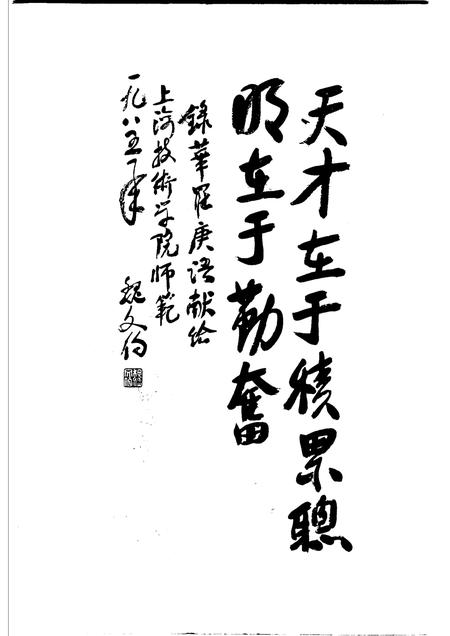 天才在于積累聰
明在于勤奮
錄華羅庚语献给
上海技術学院师範
一九八五年 魏文伯